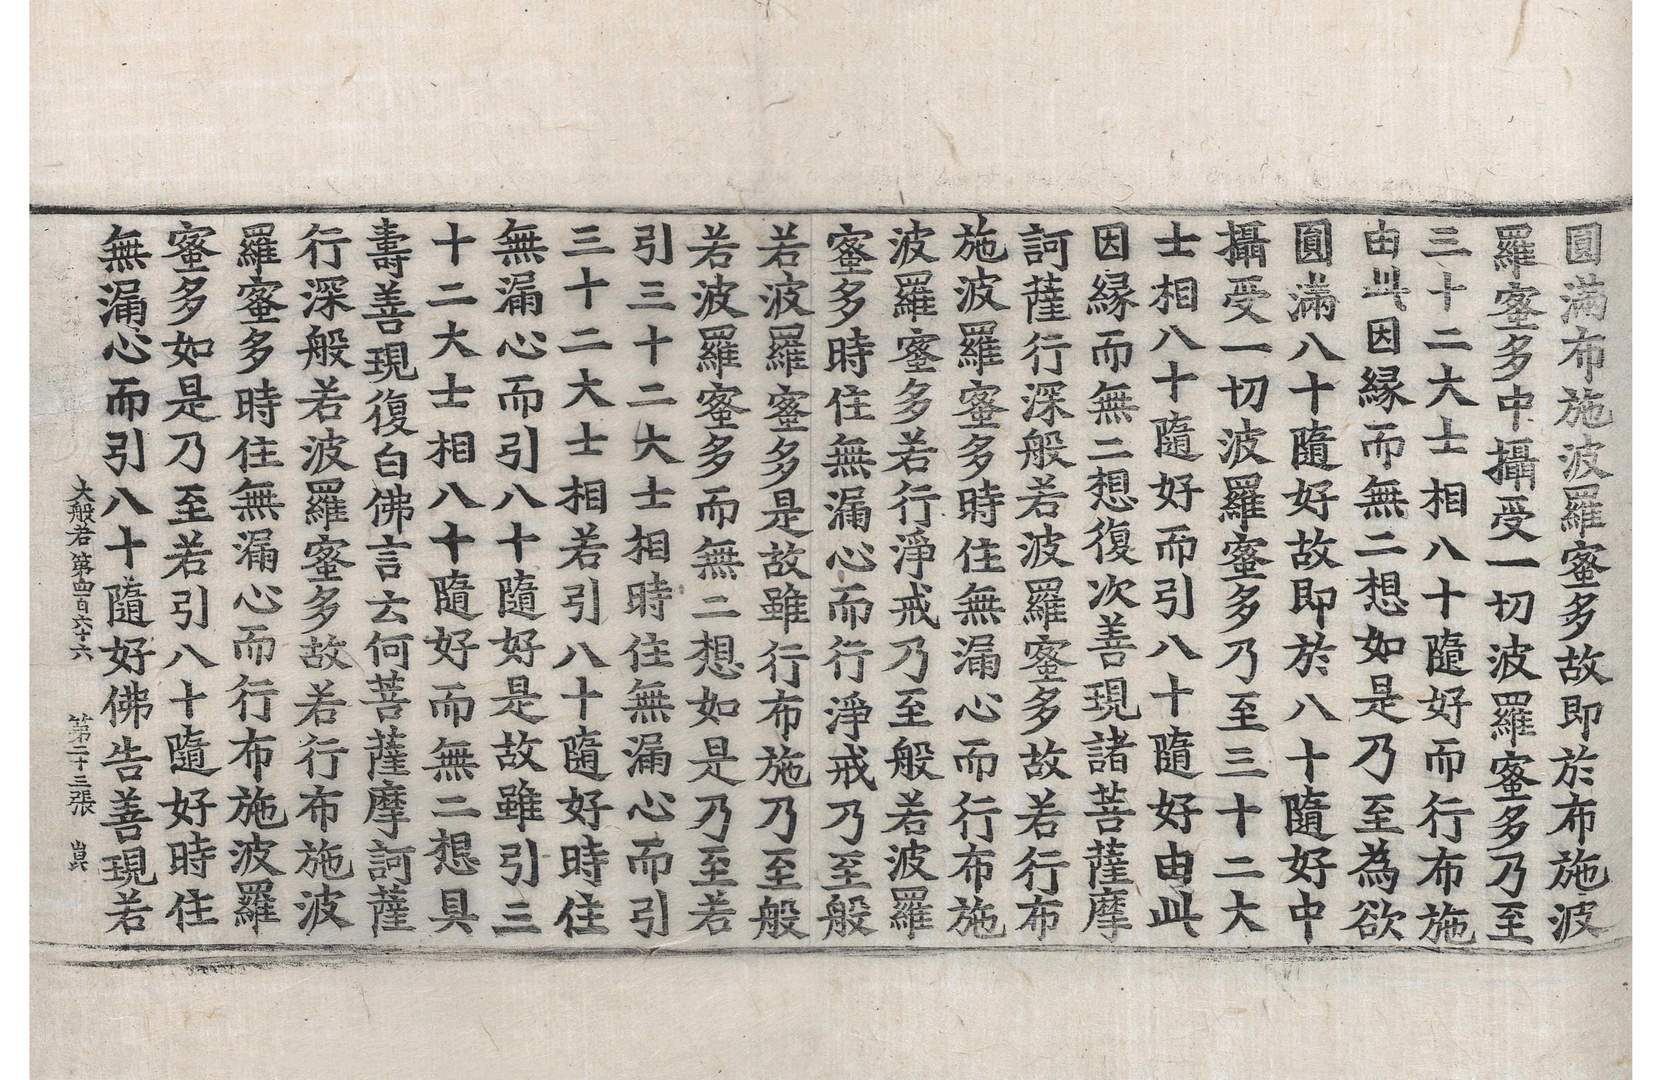 圓滿布施波羅蜜多故即於布施波
羅蜜多中攝受一切波羅蜜多乃至
三十二大士相八十隨好而行布施
由此因縁而無二想如是乃至為欲
圓滿八十隨好故即於八十隨好中
攝受一切波羅蜜多乃至三十二大
士相八十隨好而引八十隨好由此
因縁而無二想復次善現諸菩薩摩
訶薩行深般若波羅蜜多故若行布
施波羅蜜多時住無漏心而行布施
波羅蜜多若行淨戒乃至般若波羅
蜜多時住無漏心而行淨戒乃至般
若波羅蜜多是故雖行布施乃至般
若波羅蜜多而無二想如是乃至若
引三十二大士相時住無漏心而引
三十二大士相若引八十隨好時住
無漏心而引八十隨好是故雖引三
十二大士相八十隨好而無二想具
壽善現復白佛言云何菩薩摩訶薩
行深般若波羅蜜多故若行布施波
羅蜜多時住無漏心而行布施波羅
蜜多如是乃至若引八十隨好時住
無漏心而引八十隨好佛告善現若
大般若第四百六十六 第二十三張